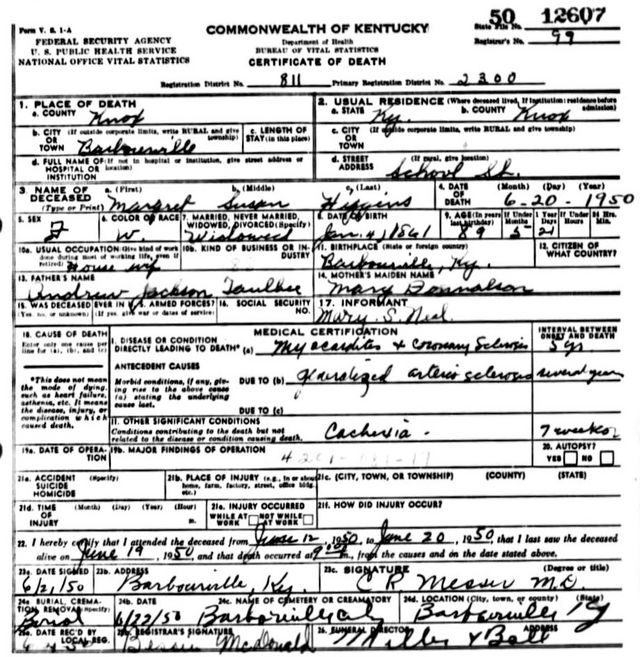 Form V. S. 1-A
FEDERAL SECURITY AGENCY
U. S. PUBLIC HEALTH SERVICE
NATIONAL OFFICE VITAL STATISTICS
COMMONWEALTH OF KENTUCKY
Department of Health
BUREAU OF VITAL STATISTICS
CERTIFICATE OF DEATH
State File No. 50 12607
Registrar's No. 99
Registration District No. 811 Primary Registration District No. 2300
1. PLACE OF DEATH
a. COUNTY Knox
b. CITY (If outside corporate limits, write RURAL and give township) OR TOWN Barbourville
c. LENGTH OF STAY (in this place)
d. FULL NAME OF (If not in hospital or institution, give street address or HOSPITAL OR INSTITUTION
2. USUAL RESIDENCE (Where deceased lived, If institution: residence before admission)
a. STATE Ky. b. COUNTY Knox
c. CITY (If outside corporate limits, write RURAL and give township) OR TOWN
d. STREET ADDRESS (If rural, give location) School St.
3. NAME OF DECEASED (Type or Print) a. (First) Margret b. (Middle) Susan c. (Last) Higgins
4. DATE OF DEATH (Month) (Day) (Year) 6-20-1950
5. SEX F 6. COLOR OR RACE W. 7. MARRIED, NEVER MARRIED, WIDOWED, DIVORCED (Specify) Widowed 8. DATE OF BIRTH Jan. 4, 1861 9. AGE (In years last birthday) 89 If Under 1 Year Months 5 Days 21 If Under 24 Hrs. Hours Min.
10a. USUAL OCCUPATION (Give kind of work done during most of working life, even if retired) House wf 10b. KIND OF BUSINESS OR INDUSTRY 11. BIRTHPLACE (State or foreign country) Barbourville, Ky. 12. CITIZEN OF WHAT COUNTRY?
13. FATHER'S NAME Andrew Jackson 14. MOTHER'S MAIDEN NAME Mary Donnalson
15. WAS DECEASED EVER IN U. S. ARMED FORCES? (Yes, no, or unknown) (If yes, give war or dates of service) 16. SOCIAL SECURITY NO. 17. INFORMANT Mary S. Neal
18. CAUSE OF DEATH
Enter only one cause per line for (a), (b), and (c)
*This does not mean the mode of dying, such as heart failure, asthenia, etc. It means the disease, injury, or complication which caused death.
MEDICAL CERTIFICATION
INTERVAL BETWEEN ONSET AND DEATH
I. DISEASE OR CONDITION DIRECTLY LEADING TO DEATH* (a) Myocarditis & Coronary Sclerosis 5 yrs
ANTECEDENT CAUSES
Morbid conditions, if any, giving rise to the above cause (a) stating the underlying cause last.
DUE TO (b) generalized arterio sclerosis several years
DUE TO (c)
II. OTHER SIGNIFICANT CONDITIONS
Conditions contributing to the death but not related to the disease or condition causing death.
Cachexia. 7 weeks
19a. DATE OF OPERATION 19b. MAJOR FINDINGS OF OPERATION 20. AUTOPSY? YES NO
21a. ACCIDENT SUICIDE HOMICIDE (Specify) 21b. PLACE OF INJURY (e.g., in or about home, farm, factory, street, office bldg., etc.) 21c. (CITY, TOWN, OR TOWNSHIP) (COUNTY) (STATE)
21d. TIME OF INJURY (Month) (Day) (Year) (Hour) m. 21e. INJURY OCCURRED WHILE AT WORK NOT WHILE AT WORK 21f. HOW DID INJURY OCCUR?
22. I hereby certify that I attended the deceased from June 12, 1950, to June 20, 1950 that I last saw the deceased
alive on June 19, 1950, and that death occurred at m., from the causes and on the date stated above.
23a. DATE SIGNED 6/21/50 23b. ADDRESS Barbourville, Ky. 23c. SIGNATURE (Degree or title) C R Messer M.D.
24a. BURIAL, CREMATION, REMOVAL (Specify) Burial 24b. DATE 6/22/50 24c. NAME OF CEMETERY OR CREMATORY Barbourville City 24d. LOCATION (City, town, or county) (State) Barbourville Ky
25a. DATE REC'D BY LOCAL REG. 25b. REGISTRAR'S SIGNATURE Bessie McDonald 26. FUNERAL DIRECTOR ADDRESS Miller & Ball